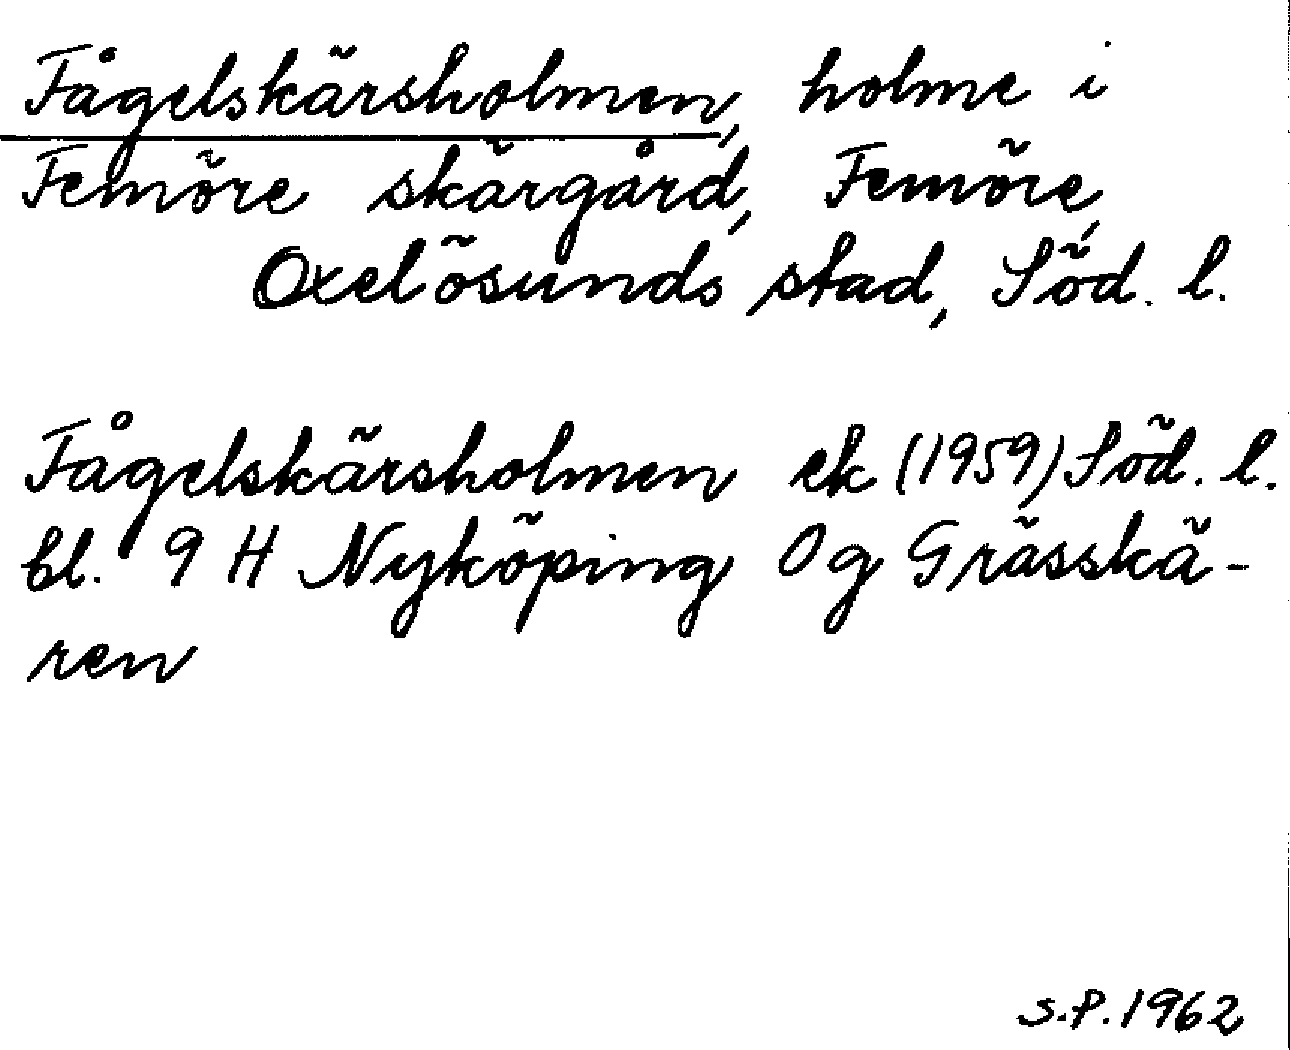 Fågelskärsholmen, holme i
Femöre skärgård, Femöre,
Oxelösunds stad, Söd. l.
Fågelskärsholmen ek (1959) Söd. l.
bl. 9 H Nyköping 0 g Grässkä-
ren
S.P. 1962